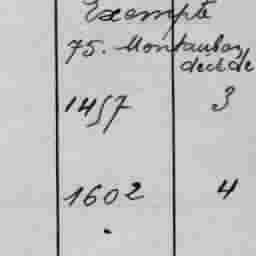 Exempte
75. Montauban
décédé
1457 3
1602 4